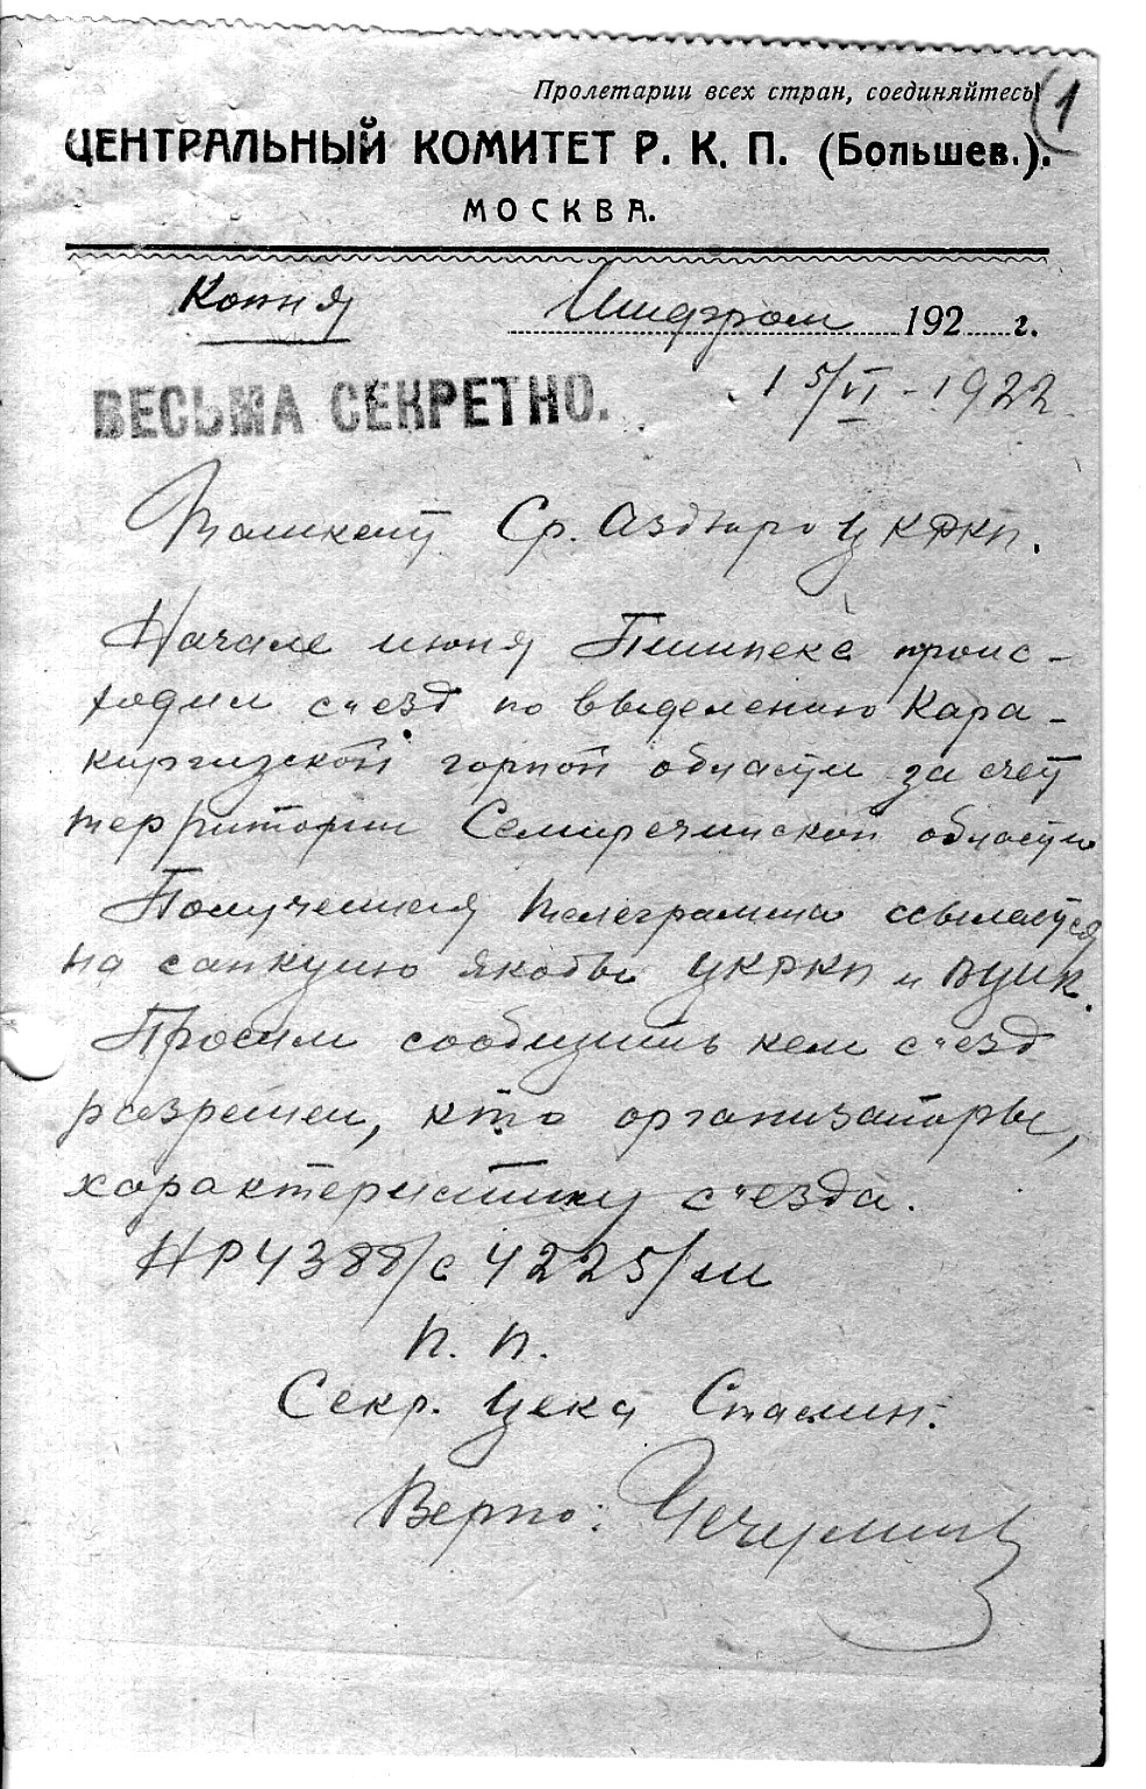 Пролетарии всех стран, соединяйтесь!
1
ЦЕНТРАЛЬНЫЙ КОМИТЕТ Р. К. П. (Большев.).
МОСКВА.
Копия
Шифром 192 г.
15/VI - 1922
ВЕСЬМА СЕКРЕТНО.
Ташкент Ср. Азбюро ЦКРКП.
Начале июня Пишпеке проис-
ходил с"езд по выделению Кара-
киргизской горной области за счет
территории Семиреченской области
Полученная телеграмма ссылается
на санкцию якобы ЦКРКП и ВЦИК.
Просим сообщить кем с"езд
разрешен, кто организаторы,
характеристику с"езда.
НР4388/с 4225/ш
п. п.
Секр. Цека Сталин.
Верно: